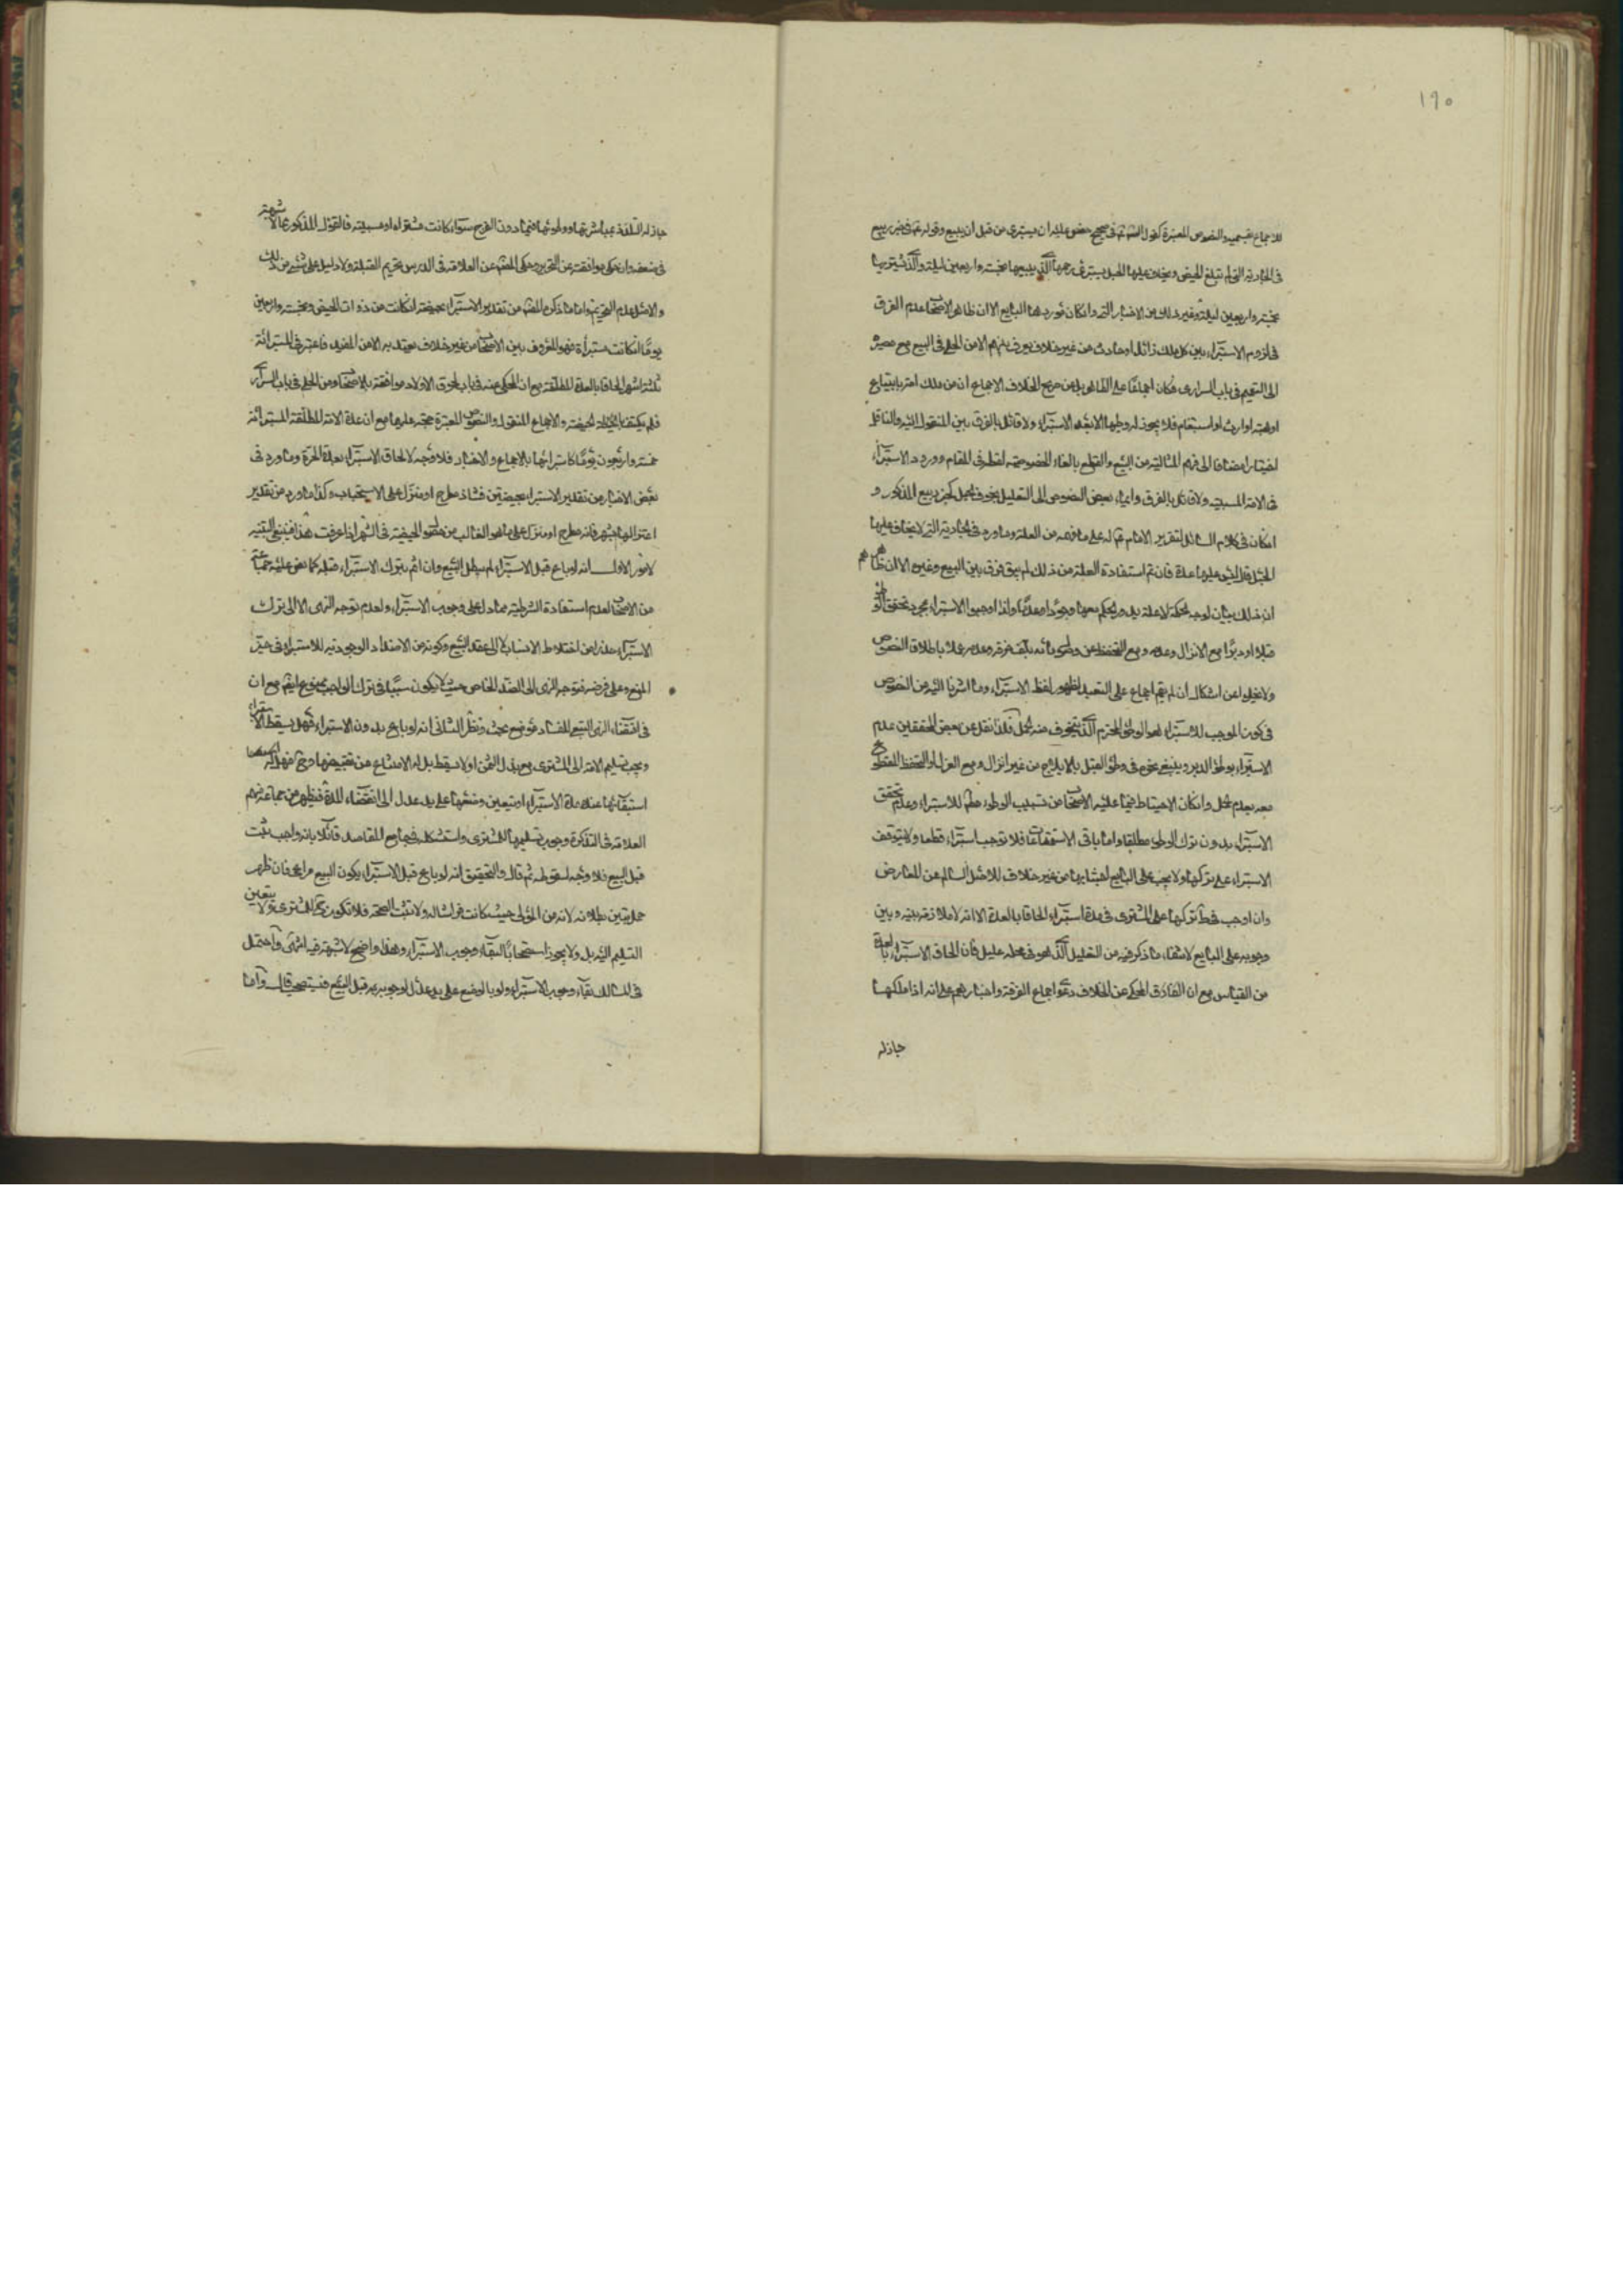 ١٩٠
للاجماع بقسميه والنصوص المعتبرة كقول الصادق ع في صحيح حفص عليه ان يستبرئ من قبل ان يبيع وقوله ع في خبر ربيع
في الجارية التي لم تبلغ المحيض ويخاف عليها الحبل يستبرئ رحمها الذي يبيعها بخمسة واربعين ليلة والذي يشتريها
بخمسة واربعين ليلة وغير ذلك من الاخبار التي وان كان موردها البايع الا ان ظاهر الاصحاب عدم الفرق
في لزوم الاستبراء بين كل ملك زائل او حادث من غير خلاف يعرف بينهم الا من الحلي في البيع مع مصيره
الى التعميم في باب السراري فكان اجماعا على الظاهر بل عن صريح الخلاف الاجماع ان من ملك امة بابتياع
او هبة او ارث او استغنام فلا يجوز له وطيها الا بعد الاستبراء ولا قائل بالفرق بين المنقول اليه والناقل
اختيارا مضافا الى فهم المثالية من البيع والقطع بالغاء الخصوصية لفظ في المقام وورود الاستبراء
في الامة المسبية ولا قائل بالفرق وايماء بعض النصوص الى التعليل بخوف الحبل كخبر ربيع المذكور و
ان كان في كلام السائل لتقرير الامام ع له على ما فهمه من العلة وما ورد في الجارية التي لا يخاف عليها
الحبل قال ليس عليها عدة فان تم استفادة العلة من ذلك لم يبق فرق بين البيع وغيره الا ان ظاهرهم
ان ذلك بيان لوجه الحكمة لا علة يدور الحكم معها وجودا وعدما ولذا اوجبوا الاستبراء بمجرد تحقق الوطي
قبلا او دبرا مع الانزال وعدمه ومع التحفظ عن وطي
ولا يخلو عن اشكال ان لم يتم اجماع على التعبد لظهور لفظ الاستبراء وما اشرنا اليه من النصوص
في كون الموجب للاستبراء هو الوطي المحترم الذي يتخوف منه الحمل ولذا نقل عن بعض المحققين عدم
الاستبراء بوطي الدبر وينبغي نحوه في وطي القبل بالايلاج من غير انزال ومع العزل او التحفظ المقطوع
معه بعدم الحمل وان كان الاحتياط فيما عليه الاصحاب من تسبيب الوطي مطلقا للاستبراء وعدم تحقق
الاستبراء بدون ترك الوطي مطلقا واما باقي الاستمتاعات فلا توجب استبراء قطعا ولا يتوقف
الاستبراء على تركها ولا يجب على البايع اجتنابها من غير خلاف للاصل السالم عن المعارض
وان اوجب تركها على المشتري في مدة استبراء الحاقا بالعدة الا انه لا ملازمة بينه وبين
وجوبه على البايع لانتفاء ما ذكر فيه من التعليل الذي هو في محله عليل فان الحاق الاستبراء بالعدة
من القياس مع ان الفارق المحكي عن الخلاف دعوى اجماع الفرقة واخبارهم على انه اذا ملكها
جاز له
جاز له التلذذ بمباشرتها ووطئها فيما دون الفرج سواء كانت مشتراة او مسبية فالقول المذكور مما لا شبهة
في ضعفه وان حكى موافقته عن التحرير وحكى المصنف عن العلامة في الدروس تحريم القبلة ولا دليل على شيء من ذلك
والاصل عدم التحريم واما ما ذكره المصنف من تقدير الاستبراء بحيضة ان كانت من ذوات الحيض وبخمسة واربعين
يوما ان كانت مسترابة فهو المعروف بين الاصحاب من غير خلاف يعتد به الا من المفيد فاعتبر في المسترابة
ثلثة اشهر الحاقا بالعدة المطلقة مع ان المحكي عنه في باب لحوق الاولاد موافقته للاصحاب ومن الحلي في باب السراري
فلم يكتف بالحيضة والاجماع المنقول والنصوص المعتبرة حجة عليهما مع ان عدة الامة المطلقة المسترابة
خمسة واربعون يوما كاسترائها بالاجماع والاخبار فلا وجه لالحاق الاستبراء بعدة الحرة وما ورد في
بعض الاخبار من تقدير الاستبراء بحيضتين فشاذ مطرح او منزل على الاستحباب وكذا ما ورد من تقدير
اعتزالها بشهر فانه مطرح او منزل على ما هو الغالب من حصول الحيضة في الشهر اذا عرفت هذا فينبغي التنبيه
لامور الاول انه لو باع قبل الاستبراء لم يبطل البيع وان اثم بترك الاستبراء قبله كما نص عليه جماعة
من الاصحاب لعدم استفادة الشرطية مما دل على وجوب الاستبراء ولعدم توجه النهي الا الى ترك
الاستبراء حذرا من اختلاط الانساب لا الى عقد البيع وكونه من الاضداد الوجودية للاستبراء في حيز
المنع وعلى فرضه فتوجه النهي الى الضد الخاص حيث لا يكون سببا في ترك الواجب ممنوع ايضا مع ان
في اقتضاء النهي التبعي الفساد موضع بحث ونظر الثاني انه لو باع بدون الاستبراء فهل يسقط الاستبراء
ويجب تسليم الامة الى المشتري مع بذل الثمن او لا يسقط بل له الامتناع من تقبيضها وح فهل له
استبقائها عنده مدة الاستبراء او يتعين وضعها على يد عدل الى انقضاء المدة فيظهر من جماعة منهم
العلامة في التذكرة وجوب تسليمها للمشتري واستشكله في جامع المقاصد قائلا بانه واجب ثبت
قبل البيع فلا وجه لسقوطه ثم قال والتحقيق انه لو باع قبل الاستبراء يكون البيع مراعى فان ظهر
حمل تبين بطلانه لانه من المولى حيث كانت فراشا له ولا تثبت الصحة فلا تكون ملك المشتري ولا يتعين
التسليم اليه بل ولا يجوز استصحابا لبقاء وجوب الاستبراء وهذا واضح لا شبهة فيه انتهى واحتمل
في المسالك بقاء وجوب الاستبراء ولو بالوضع على يد عدل لوجوبه قبل البيع فيستصحب قال واما